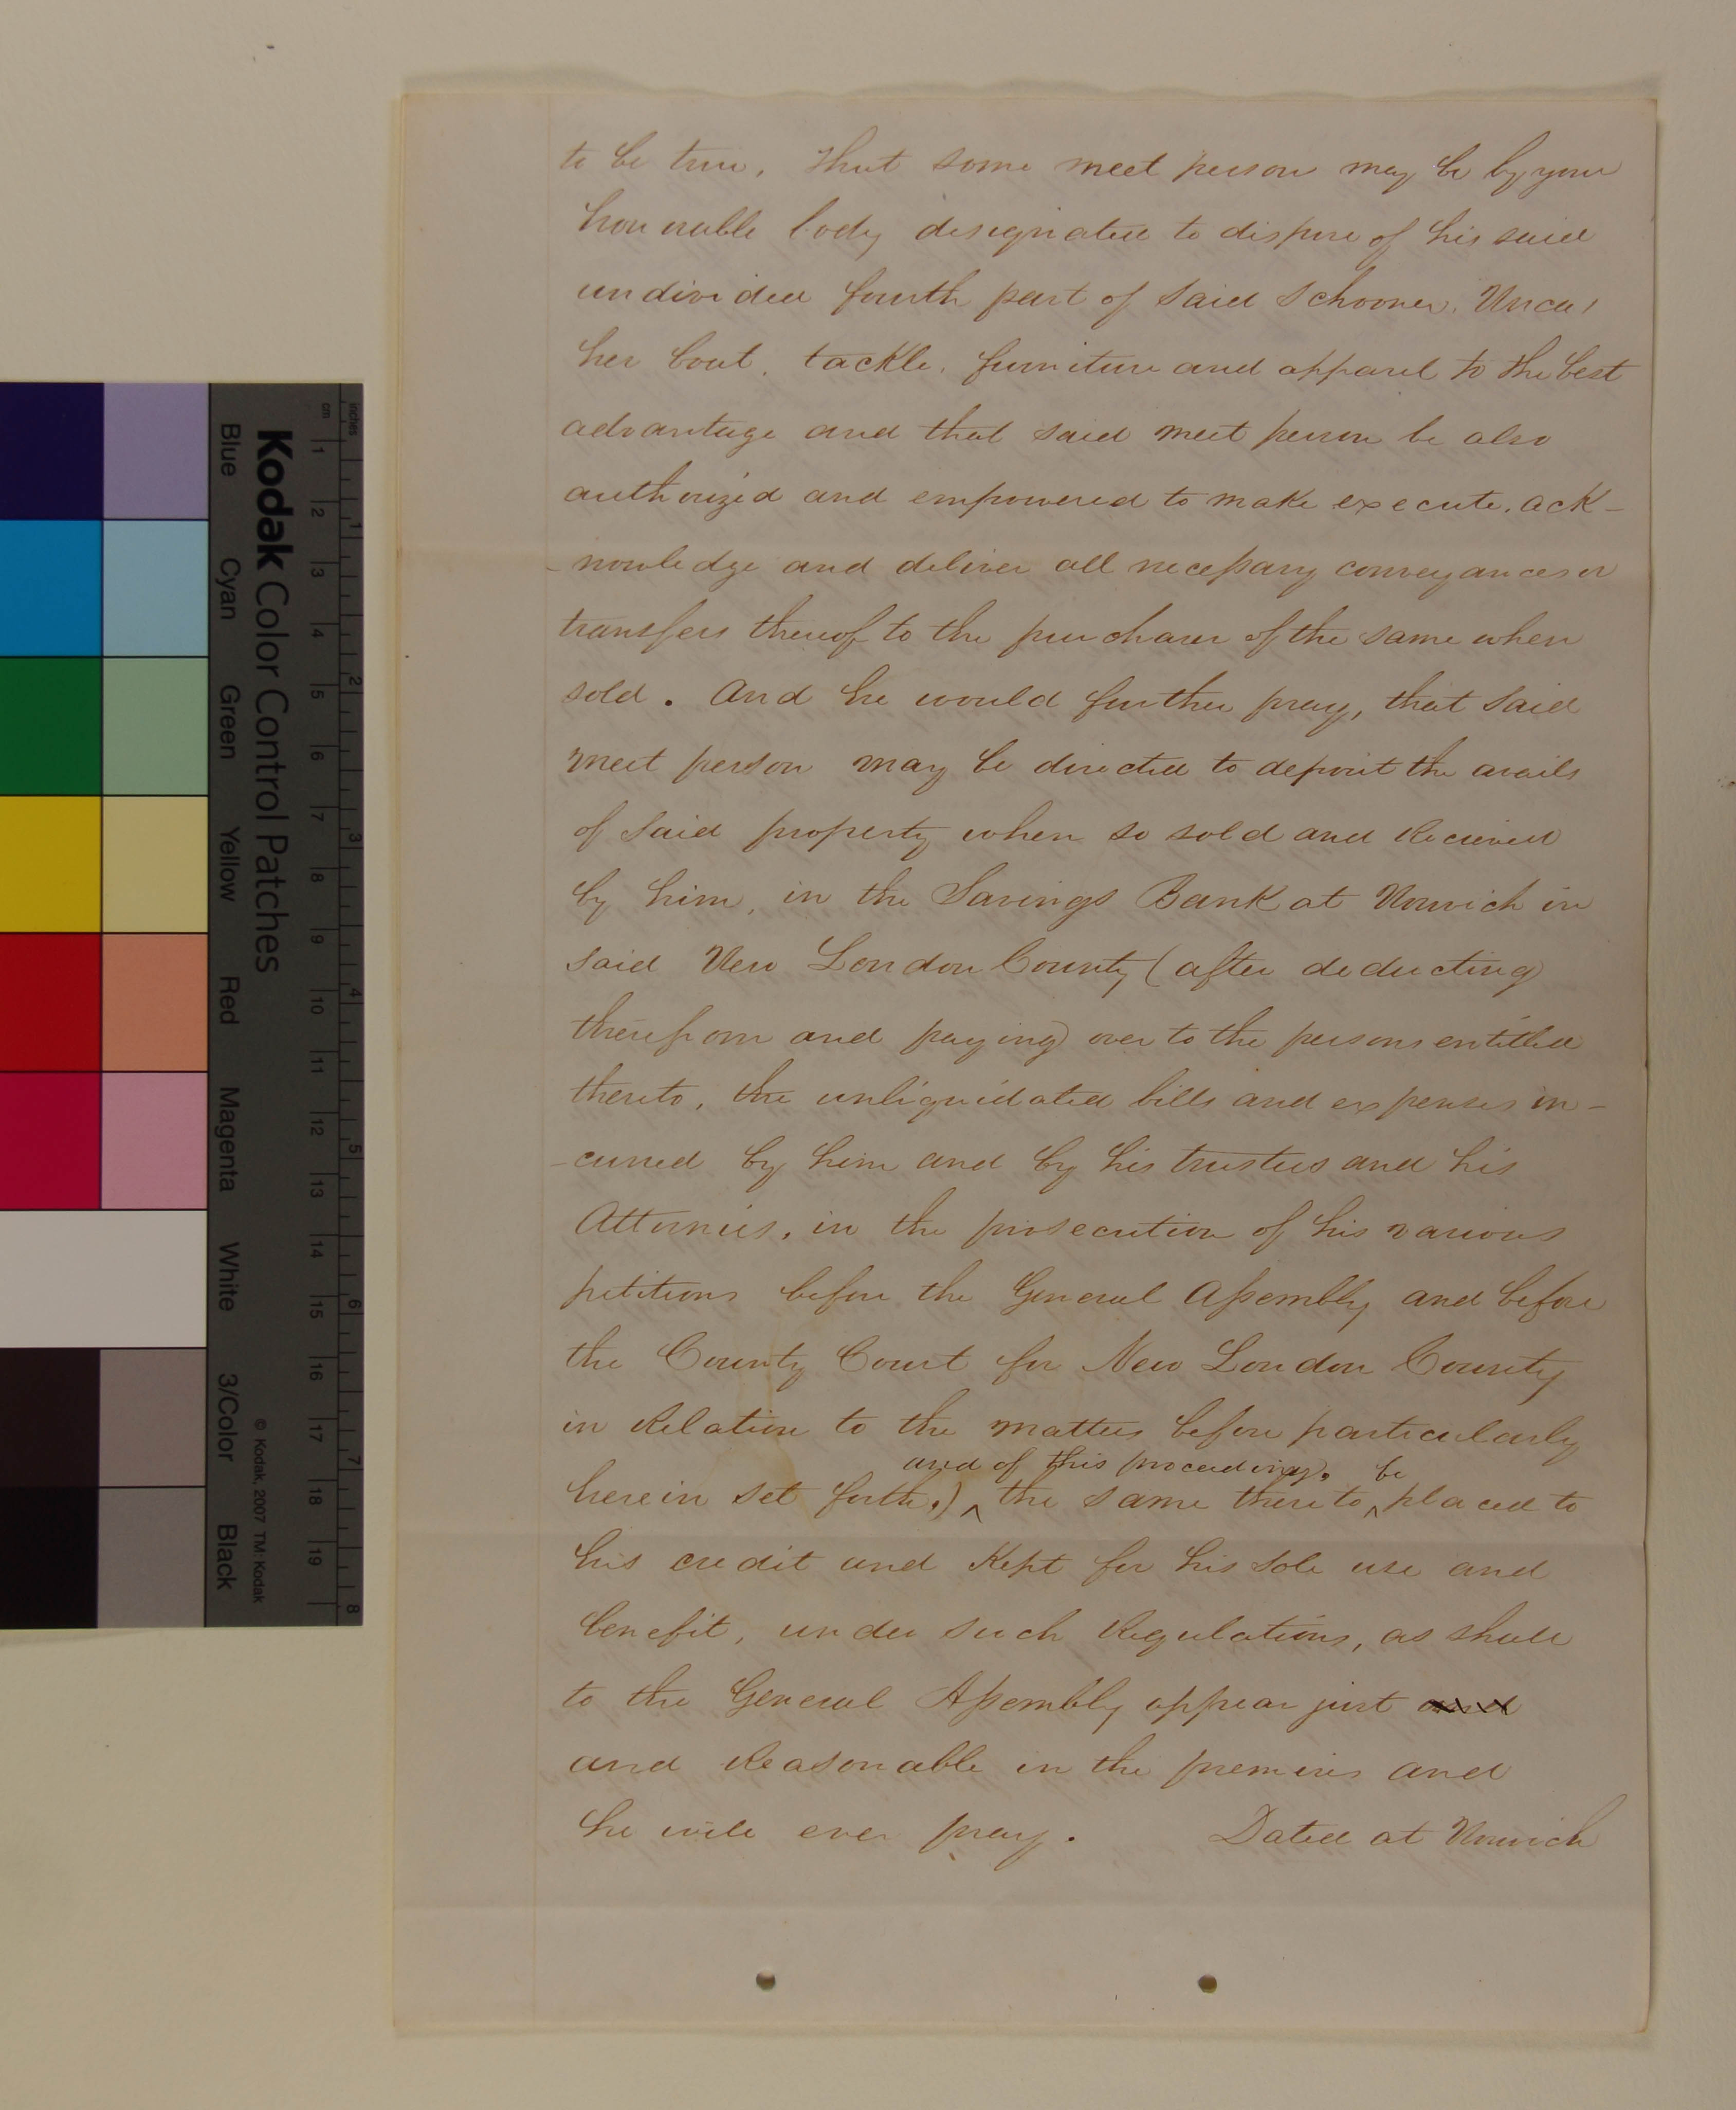 to be true, that some meet person may be by your
honorable body designated to dispose of his said
undivided fourth part of said Schooner Uncas,
her boat, tackle, furniture and apparel to the best
advantage and that said meet person be also
authorized and empowered to make execute, ack-
-nowledge and deliver all necessary conveyances or
transfers thereof to the purchaser of the same when
sold. And he would further pray, that said
meet person may be directed to deposit the avails
of said property when so sold and Recieved
by him, in the Savings Bank at Norwich in
said New London County (after deducting
therefrom and paying over to the persons entitled
thereto, the unliquidated bills and expenses in-
-curred by him and by his trustees and his
Attornies, in the prosecution of his various
petitions before the General Assembly and before
the County Court for New London County
in Relation to the matters before particularly
and of this proceeding, be
herein set forth,) ^ the same thereto ^ placed to
his credit and Kept for his sole use and
benefit, under such Regulations, as shall
to the General Assembly appear just and
and Reasonable in the premises and
he will ever pray. Dated at Norwich
inches
cm
1 2 3 4 5 6 7 8 9 10 11 12 13 14 15 16 17 18 19
1 2 3 4 5 6 7 8
Kodak Color Control Patches
© Kodak, 2007 TM: Kodak
Blue Cyan Green Yellow Red Magenta White 3/Color Black